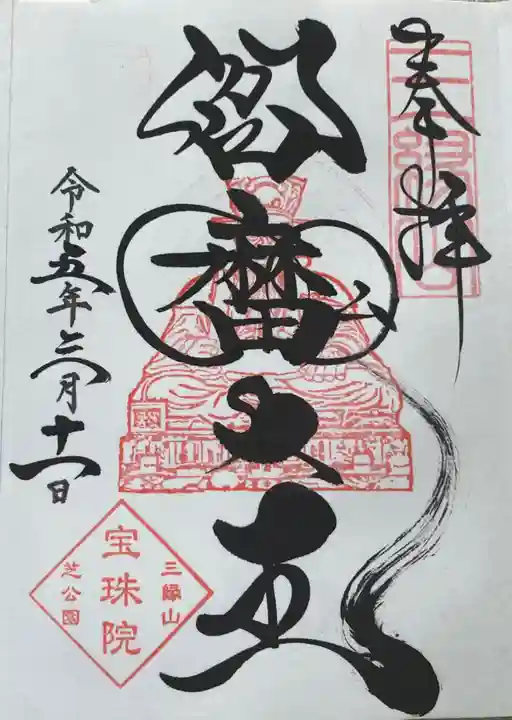 奉拝
三縁山
閻魔大王
令和五年三月十一日
三縁山
宝珠院
芝公園